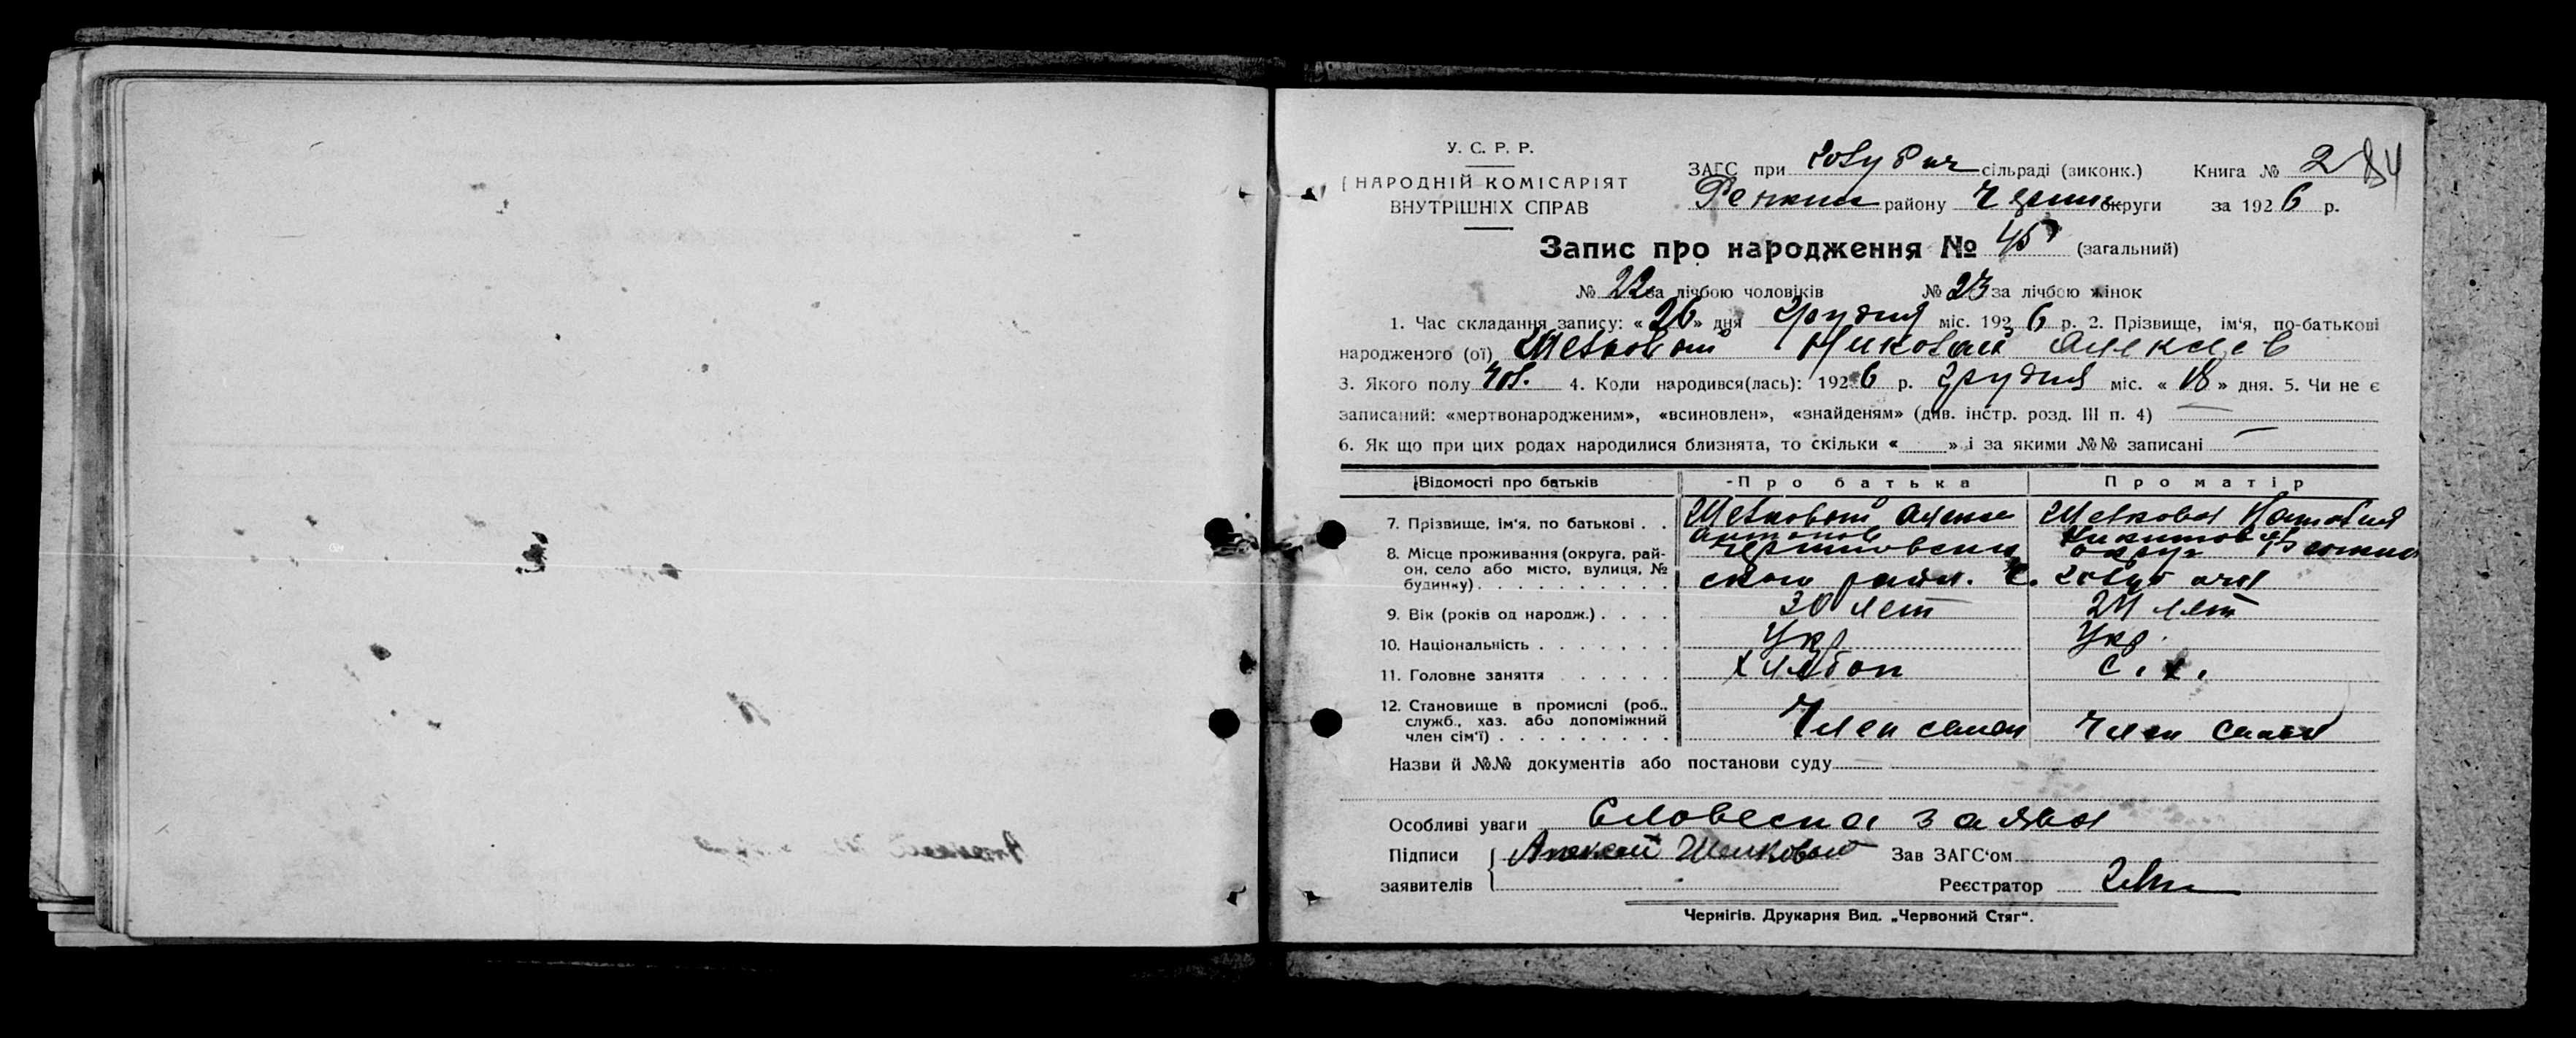 У. С. Р. Р.
НАРОДНІЙ КОМІСАРІЯТ
ВНУТРІШНІХ СПРАВ
ЗАГС при Голубич сільраді (виконк.) Книга № 2 84
Репкин району Черниг округи за 1926 р.
Запис про народження № 45 (загальний)
№ 22 за лічбою чоловіків № 23 за лічбою жінок
1. Час складання запису: «26» дня Грудня міс. 1926 р. 2. Прізвище, ім'я, по-батькові
народженого (ої) Шелковой Николай Алексеев
3. Якого полу чол. 4. Коли народився(лась): 1926 р. Грудня міс. «18» дня. 5. Чи не є
записаний: «мертвонародженим», «всиновлен», «знайденям» (див. інстр. розд. III п. 4) —
6. Як що при цих родах народилися близнята, то скільки « » і за якими №№ записані —
Відомості про батьків Про батька Про матір
7. Прізвище, ім'я, по батькові Шелковой Алексе Антонов Шелковая Наталия
8. Місце проживання (округа, рай- Черниговский округ
он, село або місто, вулиця, № ского район. С. Голубичи
будинку)
9. Вік (років од народж.) 30 лет 24 лет
10. Національність Укр Укр.
11. Головне заняття Хлебоп С. х.
12. Становище в промислі (роб.,
служб., хаз. або допоміжний
член сім'ї) Член семьи Член семьи
Назви й №№ документів або постанови суду —
Особливі уваги Словесна заява
Підписи Алексей Шелковой Зав ЗАГС'ом
заявителів Реєстратор
Чернігів. Друкарня Вид. „Червоний Стяг".